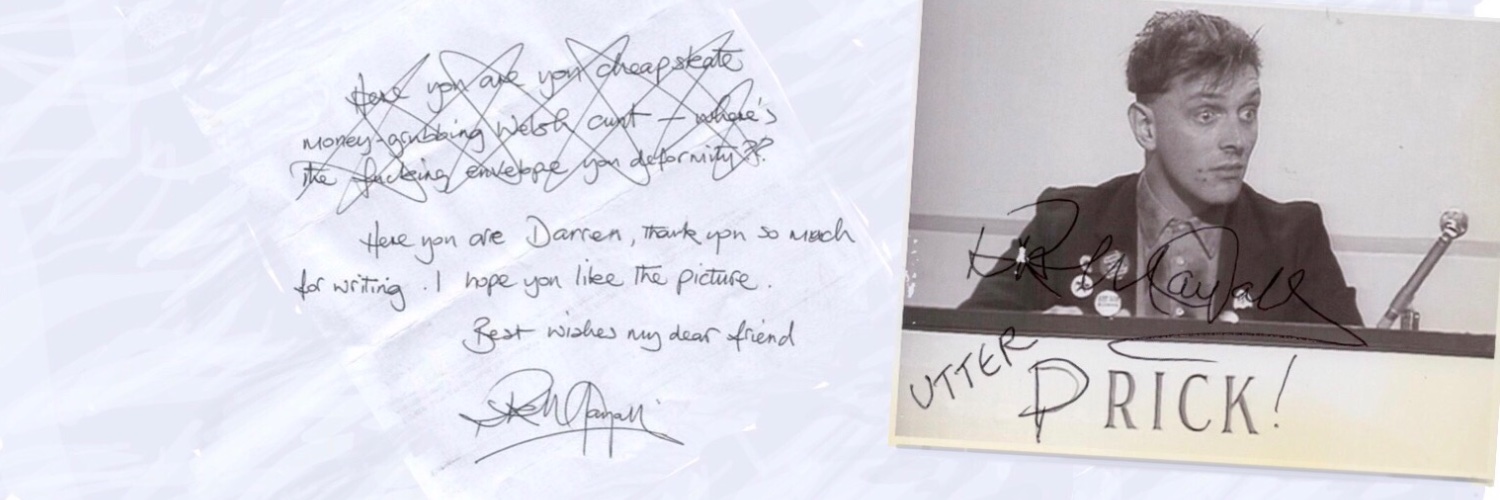 Here you are you cheapskate
money-grubbing Welsh cunt – where's
the fucking envelope you deformity??
Here you are Darren, thank you so much
for writing. I hope you like the picture.
Best wishes my dear friend
Rik Mayall
Rik Mayall
UTTER
PRICK!